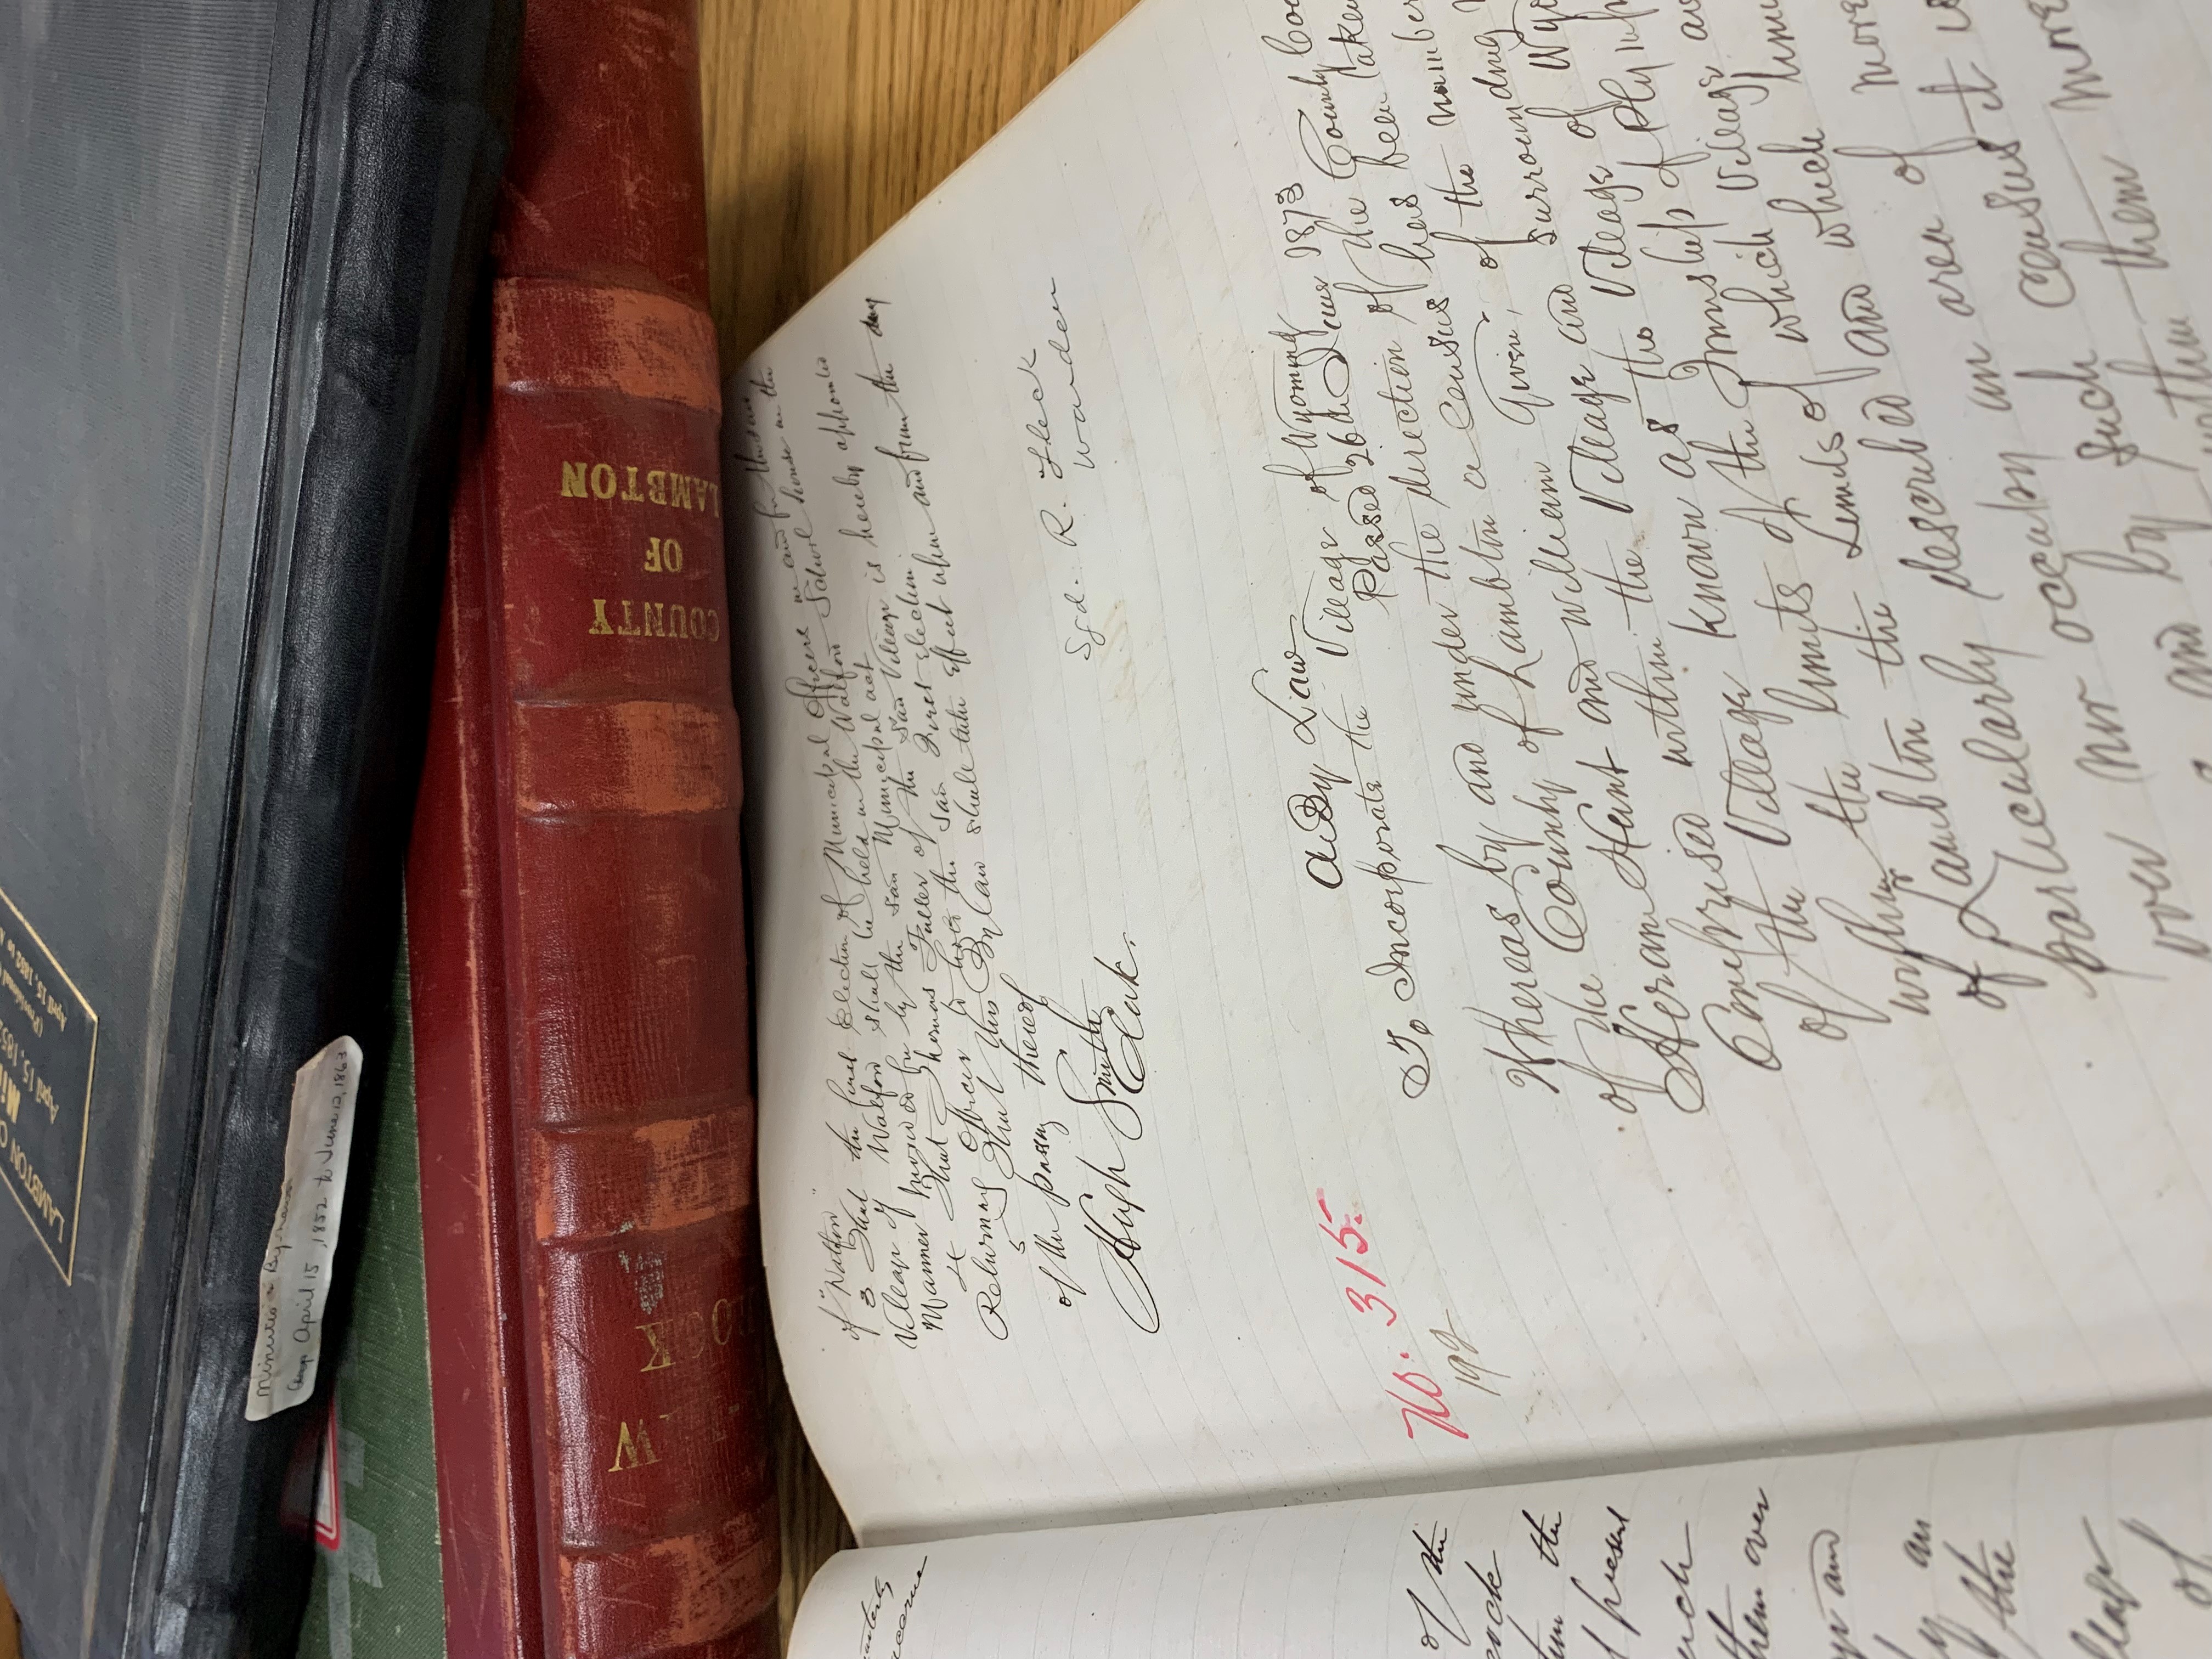 LAMBTON CO
Mi
April 15, 1852
(Provisional
April 15, 1852 to A
Minutes & By-Laws
April 15, 1852 to June 12, 1863
W
COUNTY
OF
LAMBTON
of "Watford"
3 That the first Election of Municipal Officers in and for the said
Village of Watford shall be held in the Watford School house in the
Manner provided for by the said Municipal act
4 That Thomas Fuller of the said Village is hereby appointed
Returning Officer to hold the said First Election.
5 That this Bylaw shall take Effect upon and from the day
of the passing thereof
Sgd. R. Fleck
Warden
Hugh Smith
Clerk.
A By Law
To Incorporate the Village of Wyoming
Passed 26th June 1873
No. 315.
192
Whereas by and under the direction of the County Cou
of the County of Lambton a Census has been taken
Hiram Hunt and William Given, of the number
Comprised within the Village and surrounding
of the Village known as the Village of Wyo
within the limits of the Township of Plymp
of Lambton the Limits of which Village are
particularly described and which limi
over nor occupy an area of more
and by such Census it is
within them more
of the
the
present
them over
and
by an
the
of